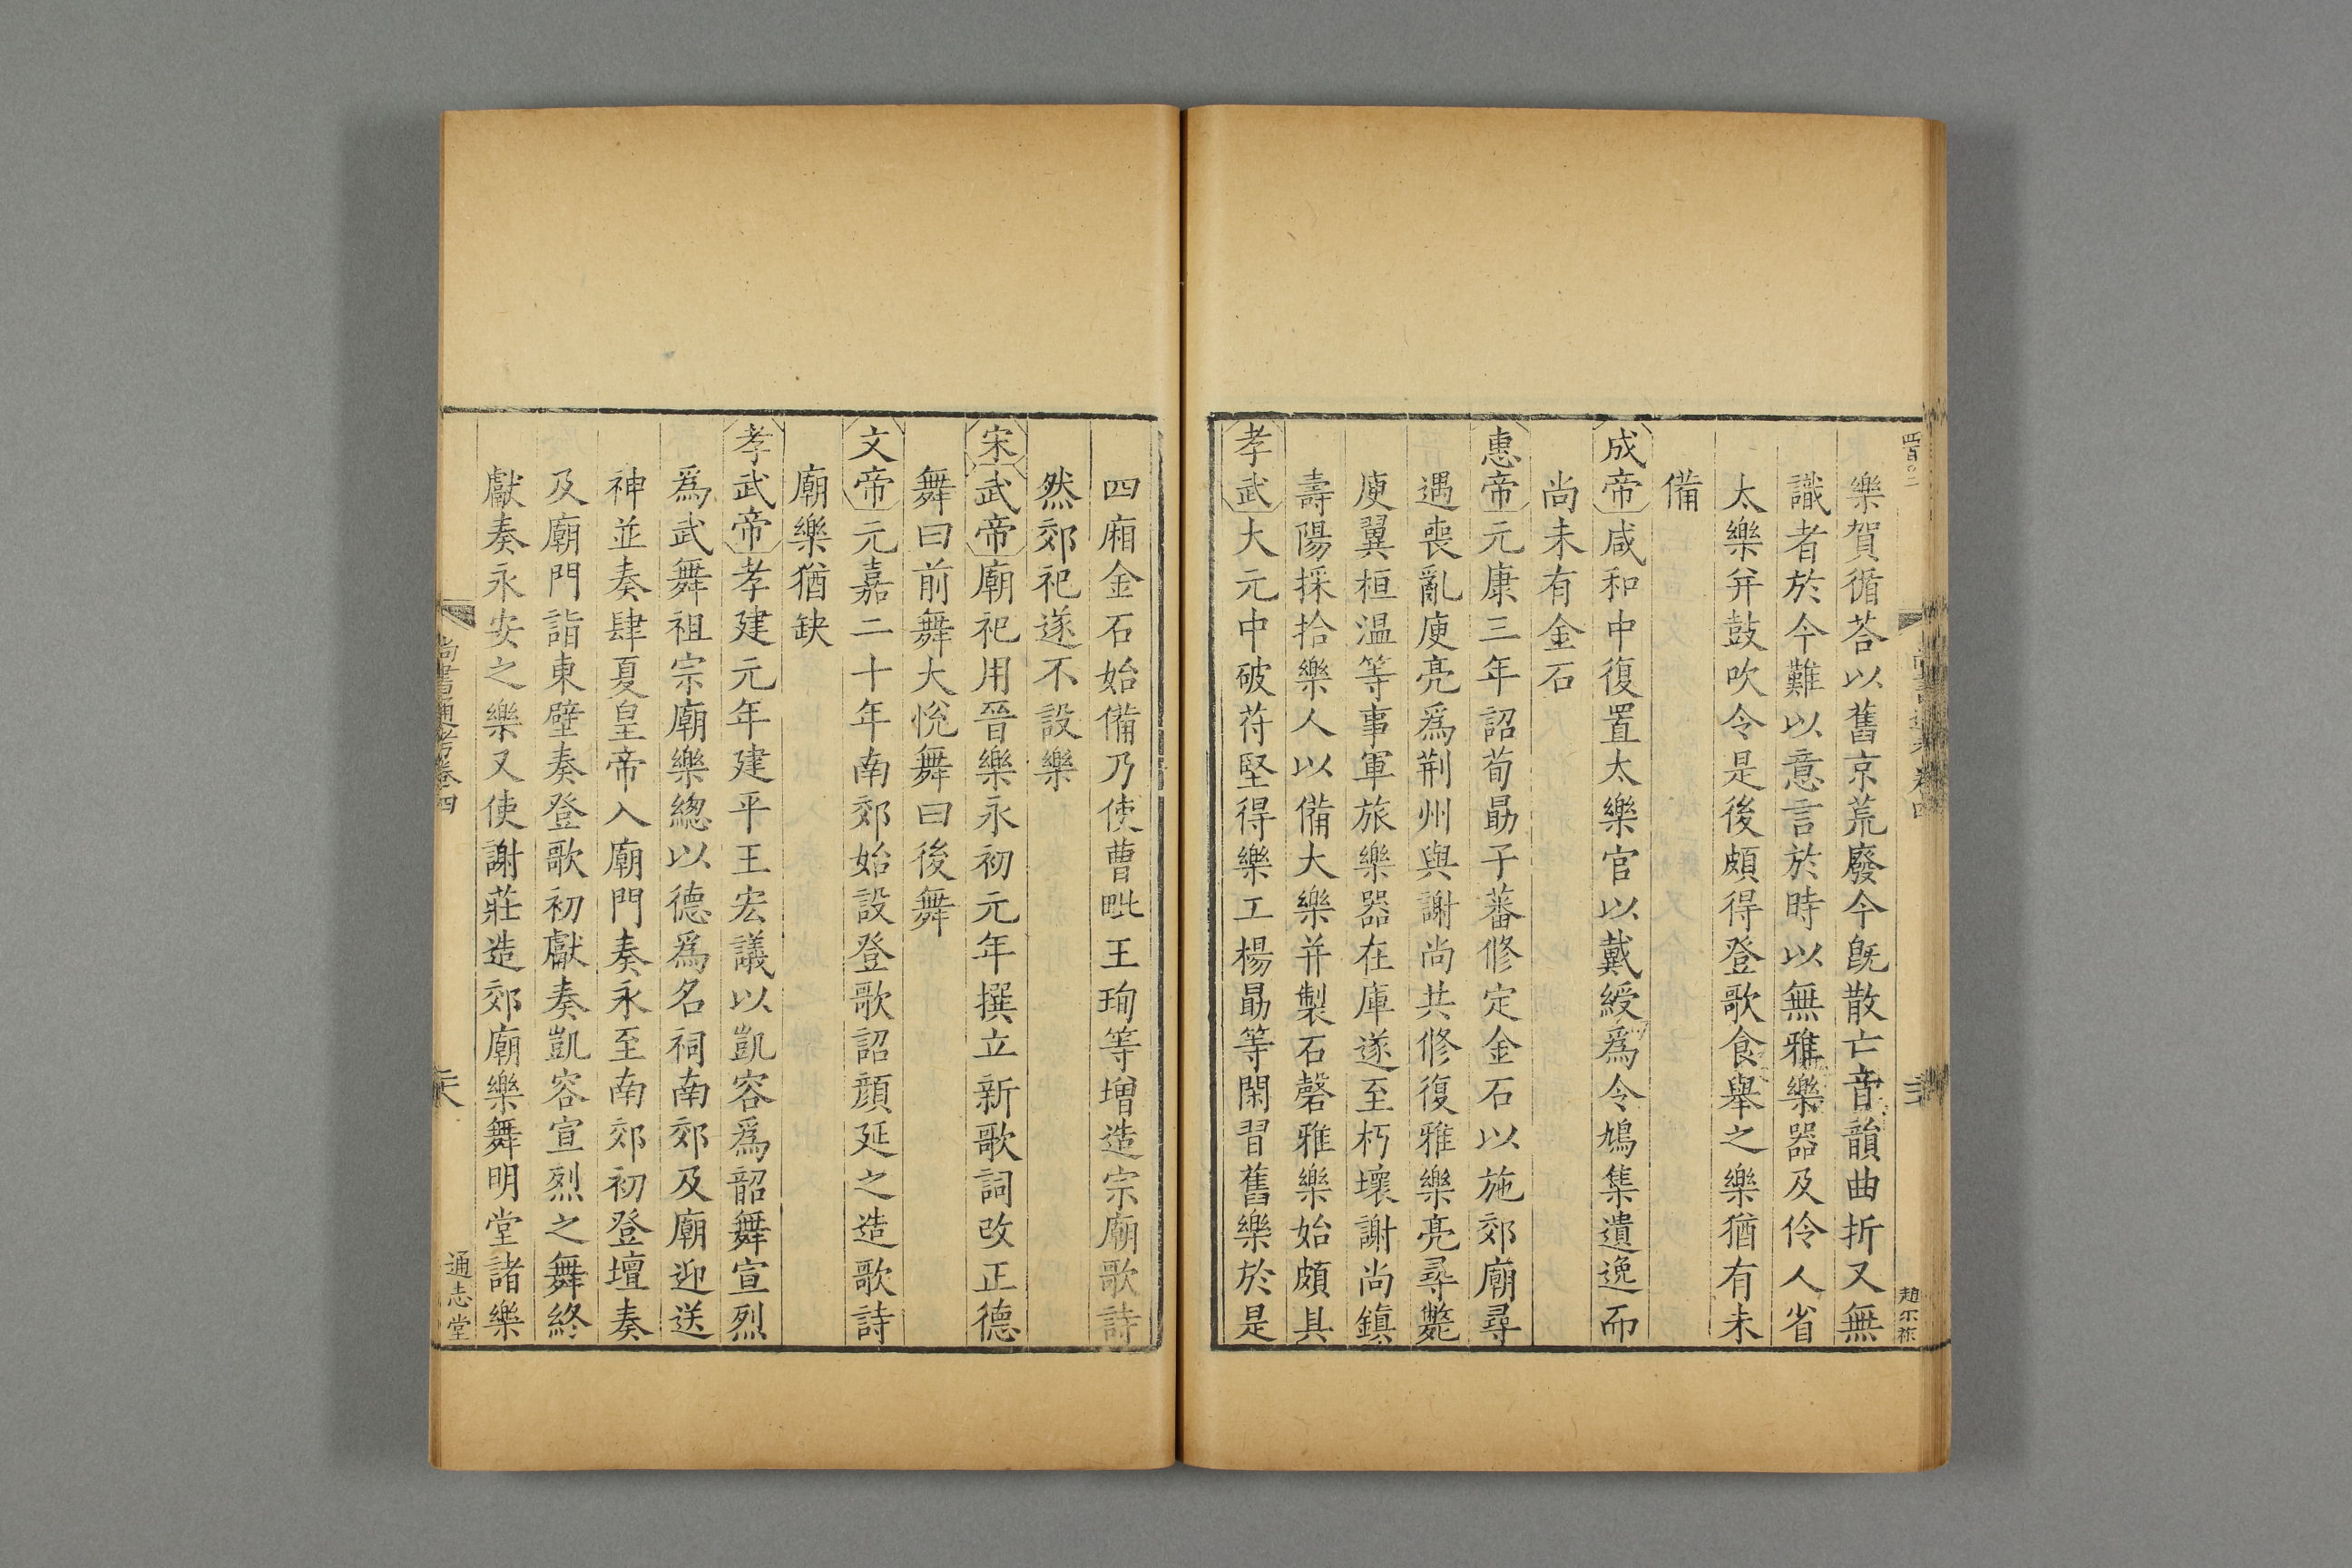 樂賀循荅以舊京荒廢今旣散亡音韻曲折又無
識者於今難以意言於時以無雅樂器及伶人省
太樂并鼓吹令是後頗得登歌食舉之樂猶有未
備
成帝咸和中復置太樂官以戴綬爲令鳩集遺逸而
尚未有金石
惠帝元康三年詔荀勗子蕃修定金石以施郊廟尋
遇喪亂庾亮爲荆州與謝尚共修復雅樂亮尋斃
庾翼桓温等事軍旅樂器在庫遂至朽壞謝尚鎮
壽陽採拾樂人以備大樂并製石磬雅樂始頗具
孝武大元中破苻堅得樂工楊勗等閑習舊樂於是
四廂金石始備乃使曹毗王珣等增造宗廟歌詩
然郊祀遂不設樂
宋武帝廟祀用晉樂永初元年撰立新歌詞改正德
舞曰前舞大悅舞曰後舞
文帝元嘉二十年南郊始設登歌詔顔延之造歌詩
廟樂猶缺
孝武帝孝建元年建平王宏議以凱容爲韶舞宣烈
爲武舞祖宗廟樂緫以德爲名祠南郊及廟迎送
神並奏肆夏皇帝入廟門奏永至南郊初登壇奏
及廟門詣東壁奏登歌初獻奏凱容宣烈之舞終
獻奏永安之樂又使謝莊造郊廟樂舞明堂諸樂
尚書通考卷四
通志堂